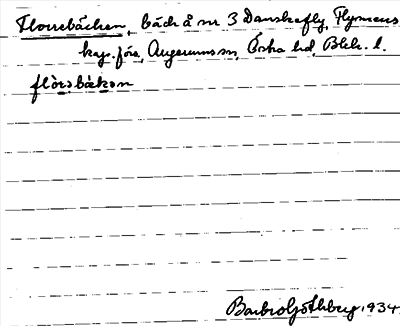 Florrebäcken, bäck å nr 3 Danskafly, Flymens
kap.förs, Augerums sn, Östra hd, Blek. l.
flòrəbä̀kən
Barbro Götberg 1934